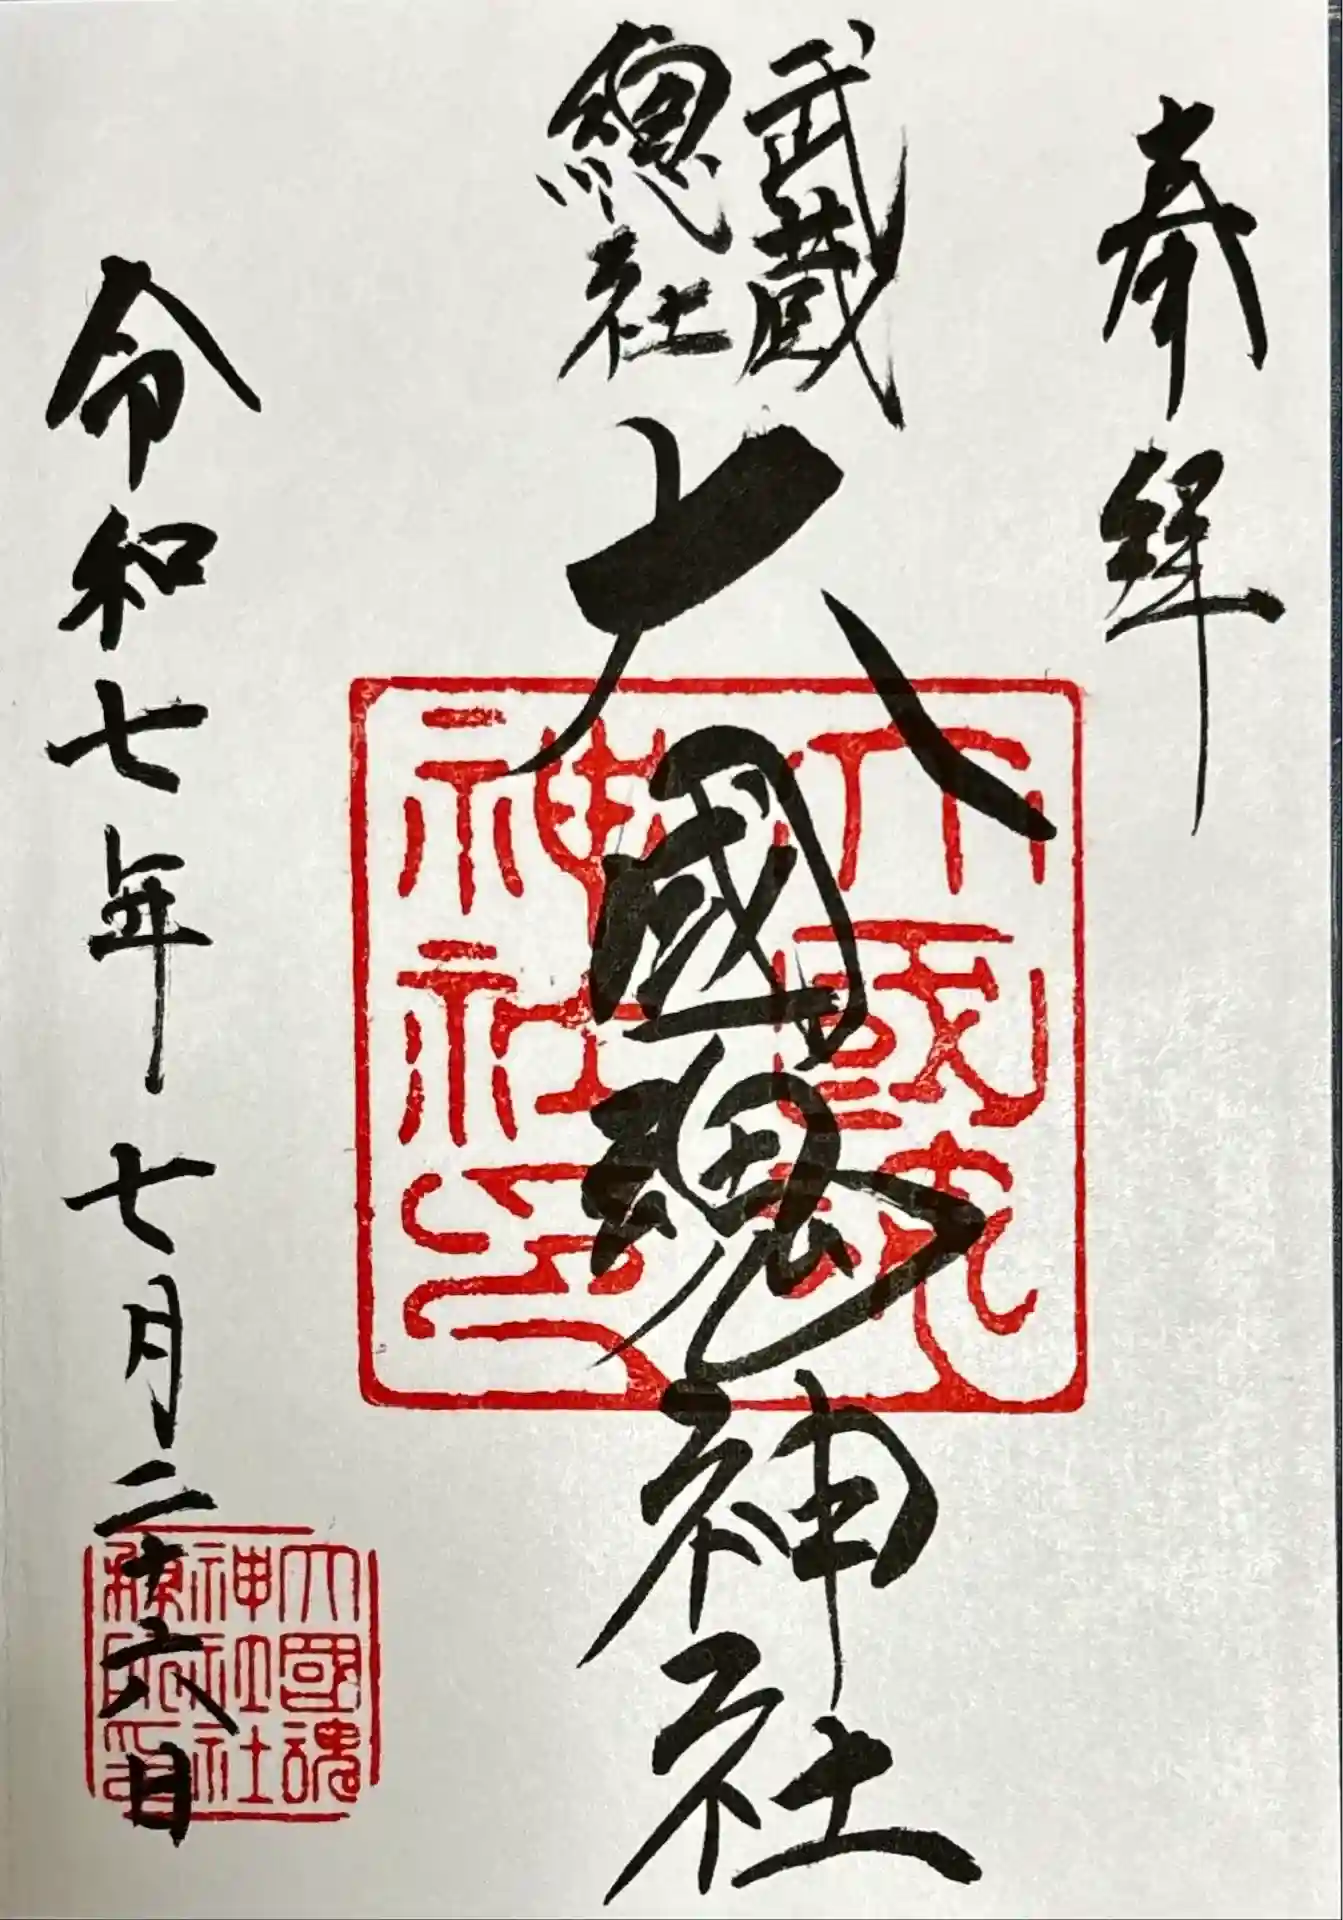 奉拝
武蔵
總社
大國魂神社
令和七年七月二十六日
大國魂
神社印
大國魂
神社社